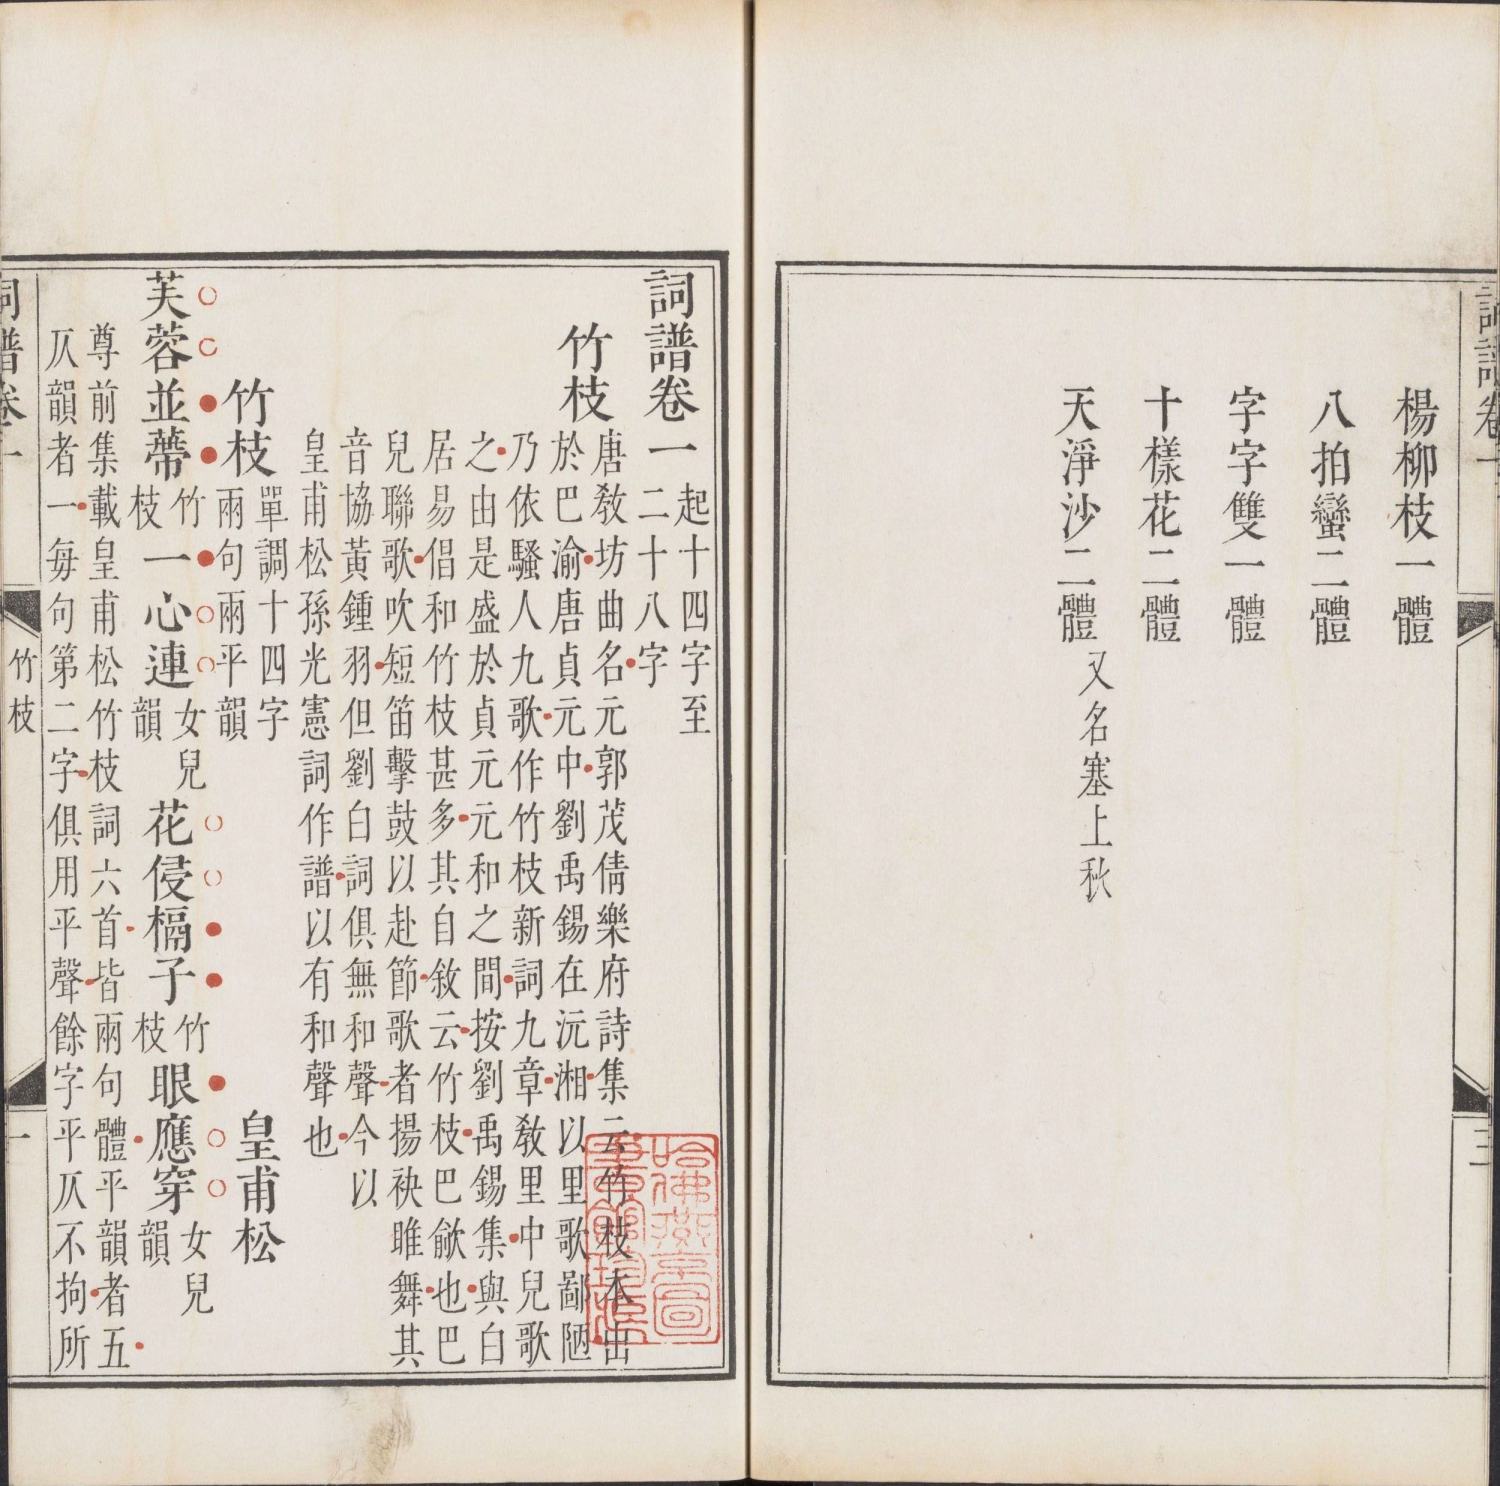 詞譜卷一
三
楊柳枝一體
八拍蠻二體
字字雙一體
十樣花二體
天淨沙二體又名塞上秋
詞譜卷一起十四字至
二十八字
竹枝唐敎坊曲名元郭茂倩樂府詩集云竹枝本出
於巴渝唐貞元中劉禹錫在沅湘以里歌鄙陋
乃依騷人九歌作竹枝新詞九章敎里中兒歌
之由是盛於貞元元和之間按劉禹錫集與白
居易倡和竹枝甚多其自敘云竹枝巴歈也巴
兒聯歌吹短笛擊鼓以赴節歌者揚袂睢舞其
音協黃鍾羽但劉白詞俱無和聲今以
皇甫松孫光憲詞作譜以有和聲也
竹枝單調十四字
兩句兩平韻
皇甫松
芙蓉並蔕竹枝一心連女兒韻花侵槅子竹枝眼應穿女兒韻
尊前集載皇甫松竹枝詞六首皆兩句體平韻者五
仄韻者一每句第二字俱用平聲餘字平仄不拘所
詞譜卷一
竹枝
一
哈佛燕京圖
書館珍藏